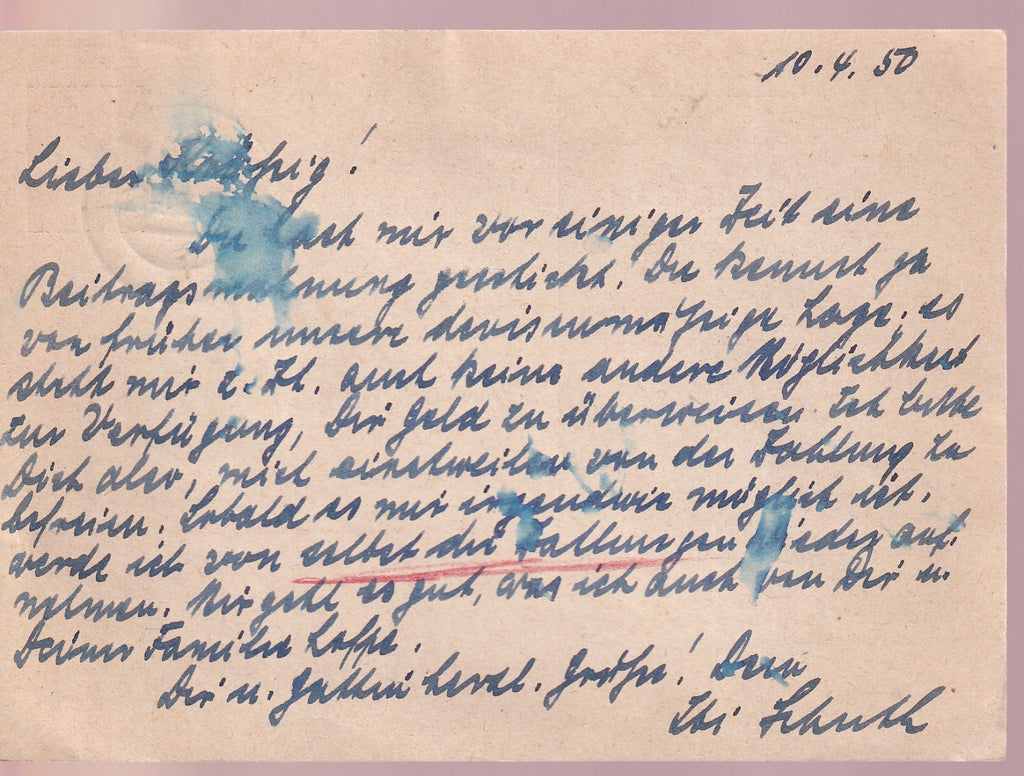 10.4.50
Lieber !
Du hast mir vor einiger Zeit eine
Beitragsmahnung geschickt. Du kennst ja
von früher unsere devisenmäßige Lage. es
steht mir z. Zt. auch keine andere Möglichkeit
zur Verfügung, Dir Geld zu überweisen. Ich bitte
Dich also, mich einstweilen von der Zahlung zu
befreien. Sobald es mir irgendwie möglich ist,
werde ich von selbst die Zahlungen wieder auf-
nehmen. Mir geht es gut, was ich auch von Dir u.
Deiner Familie hoffe.
Dir u. Gattin herzl. Grüße! Dein